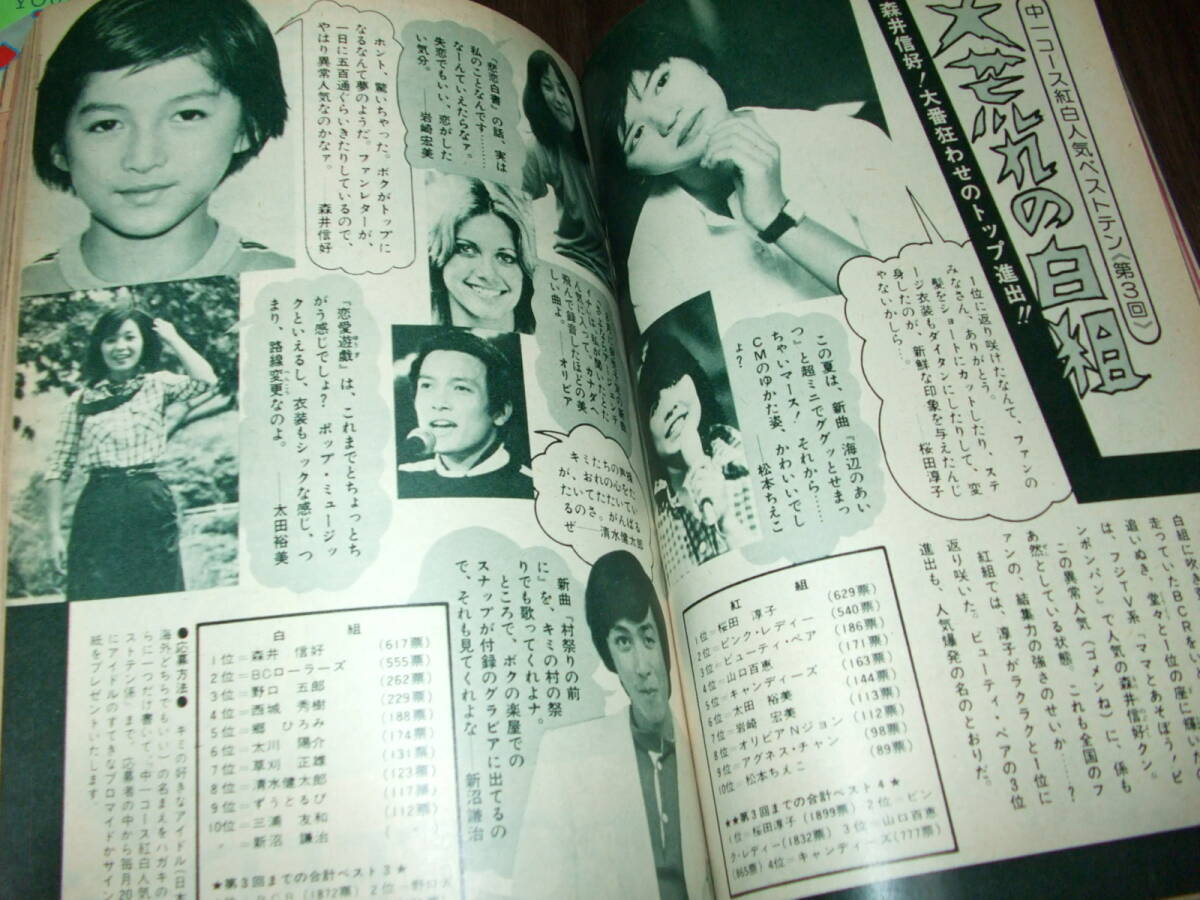 中一コース紅白人気ベストテン《第3回》
大荒れの白組
森井信好!大番狂わせのトップ進出!!
1位に返り咲けたなんて、ファンの
みなさん、ありがとう。
髪をショートにカットしたり、ステ
ージ衣装もダイタンにしたりして、変
身したのが、新鮮な印象を与えたんじ
ゃないかしら…。
――桜田淳子
この夏は、新曲『海辺のあい
つ』と超ミニでググッとせまっ
ちゃいマース!それから……
CMのゆかた姿、かわいいでし
ょ?
――松本ちえこ
『悲恋白書』の話、実は
私のことなんです………
なーんていえたらなァ。
失恋でもいい、恋がした
い気分。
――岩崎宏美
ホント、驚いちゃった。ボクがトップに
なるなんて夢のようだ。ファンレターが、
一日に五百通ぐらいきたりしているので、
やはり異常人気なのかなァ。
――森井信好
ん気に入って、カナダへ
飛んで録音したほどの美
しい曲よ
オリビア
『恋愛遊戯』は、これまでとちょっとち
がう感じでしょ?ポップ・ミュージッ
クといえるし、衣装もシックな感じ、つ
まり、路線変更なのよ。
――太田裕美
キミたちの声援
が、おれの心をた
たいてたたいてい
るのさ。がんばる
ぜ――清水健太郎
新曲『村祭りの前
に』を、キミの村の祭
りでも歌ってくれよナ。
ところで、ボクの楽屋での
スナップが付録のグラビアに出てるの
で、それも見てくれよな――新沼謙治
白組に吹
走っていたBCRを
追いぬき、堂々と1位の座に輝い
は、フジTV系「ママとあそぼう!ピ
ンポンパン」で人気の森井信好クン。
この異常人気(ゴメンね)に、係も
あ然としている状態。これも全国のフ
ァンの、結集力の強さのせいか……?
紅組では、淳子がラクラクと1位に
返り咲いた。ビューティ・ペアの3位
進出も、人気爆発の名のとおりだ。
紅組
1位=桜田淳子 (629票)
2位=ピンク・レディー (540票)
3位=ビューティ・ペア (186票)
4位=山口百恵 (171票)
5位=キャンディーズ (163票)
6位=太田裕美 (144票)
7位=岩崎宏美 (113票)
8位=オリビアNジョン (112票)
9位=アグネス・チャン (98票)
10位=松本ちえこ (89票)
★★第3回までの合計ベスト4★
1位=桜田淳子(1899票) 2位=ピン
ク・レディー(1832票) 3位=山口百恵
(865票) 4位=キャンディーズ(777票)
白組
1位=森井信好 (617票)
2位=BCローラーズ (555票)
3位=野口五郎 (262票)
4位=西城秀樹 (229票)
5位=郷ひろみ (188票)
6位=太川陽介 (174票)
7位=草刈正雄 (131票)
8位=清水健太郎 (123票)
9位=ずうとるび (117票)
10位=三浦友和 (112票)
〃=新沼謙治 (〃)
★第3回までの合計ベスト3★
(1872票) 2位=野口五
●応募方法● キミの好きなアイドル(日本
海外どちらでもいい)の名まえをハガキの
らに一つだけ書いて、「中一コース紅白人気
ストテン係」まで、応募者の中から毎月20
にアイドルのすてきなブロマイドかサイン
紙をプレゼントいたします